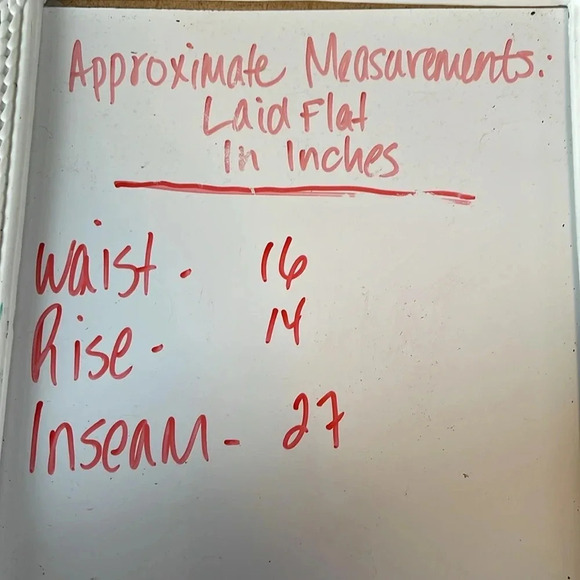 Approximate Measurements:
Laid Flat
In Inches
Waist - 16
Rise - 14
Inseam - 27